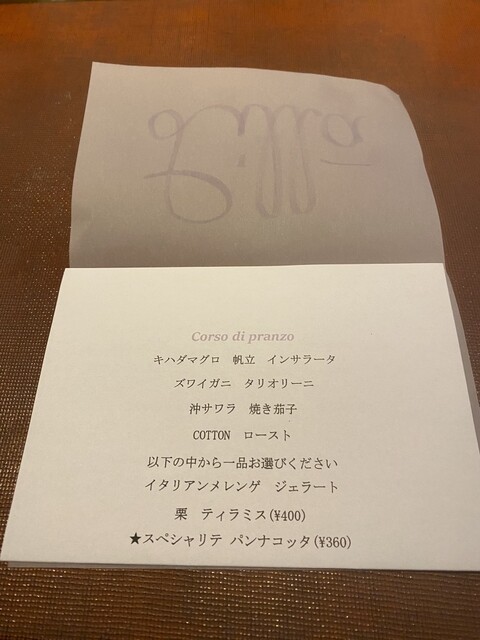 Corso di pranzo
キハダマグロ 帆立 インサラータ
ズワイガニ タリオリーニ
沖サワラ 焼き茄子
COTTON ロースト
以下の中から一品お選びください
イタリアンメレンゲ ジェラート
栗 ティラミス(¥400)
★スペシャリテ パンナコッタ(¥360)